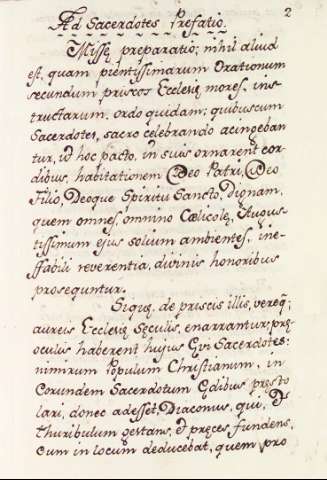 2
Ad Sacerdotes Prefatio.
Missę preparatio; nihil aliud
est, quam pientissimarum Orationum
secundum priscos Ecclesię mores, ins
tructarum, ordo quidam; quibuscum
Sacerdotes, sacro celebrando acingeban
tur, ut hoc pacto, in suis ornarent cor
dibus, habitationem Deo Patri, Deo
Filio, Deoque Spiritu Sancto, dignam,
quem omnes, omnino Cælicolę, Augus-
tissimum ejus solium ambientes, ine-
ffabili reverentia, divinis honoribus
prosequntur.
Siquę, de priscis illis, vereq;
aureis Ecclesię Sęculis, enarrantur; prę
oculis haberent hujus Ęvi Sacerdotes:
nimirum Populum Christianum, in
Eorundem Sacerdotum Ędibus pręsto
lari, donec adesset Diaconus, qui, Et
thuribulum gestans, et pręces fundens,
Eum in locum deducebat, quem pro